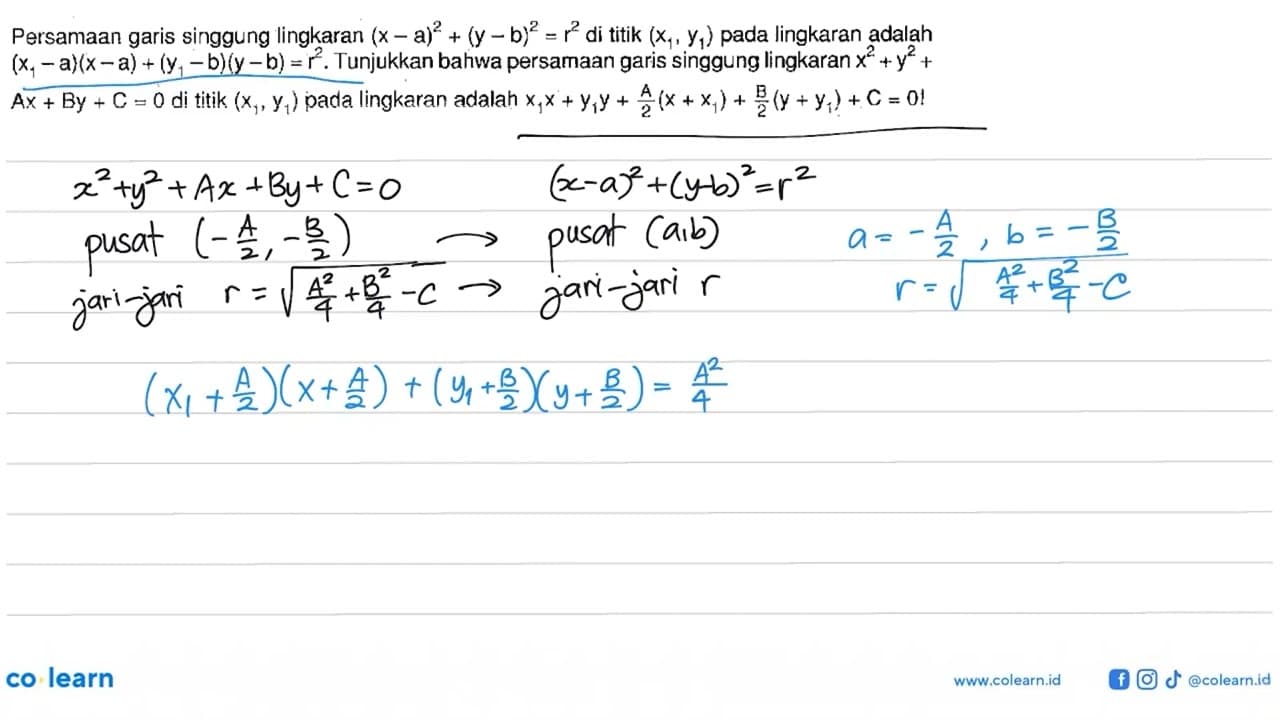 Persamaan garis singgung lingkaran (x – a)² + (y – b)² = r² di titik (x₁, y₁) pada lingkaran adalah
(x₁ – a)(x – a) + (y₁ – b)(y – b) = r². Tunjukkan bahwa persamaan garis singgung lingkaran x² + y² +
Ax + By + C = 0 di titik (x₁, y₁) pada lingkaran adalah x₁x + y₁y + A/2 (x + x₁) + B/2 (y + y₁) + C = 0!
x² + y² + Ax + By + C = 0 (x-a)² + (y-b)² = r²
pusat (-A/2, -B/2) → pusat (a,b) a = -A/2, b = -B/2
jari-jari r = √(A²/4 + B²/4 - C) → jari-jari r r = √(A²/4 + B²/4 - C)
(x₁ + A/2)(x + A/2) + (y₁ + B/2)(y + B/2) = A²/4
co learn www.colearn.id @colearn.id